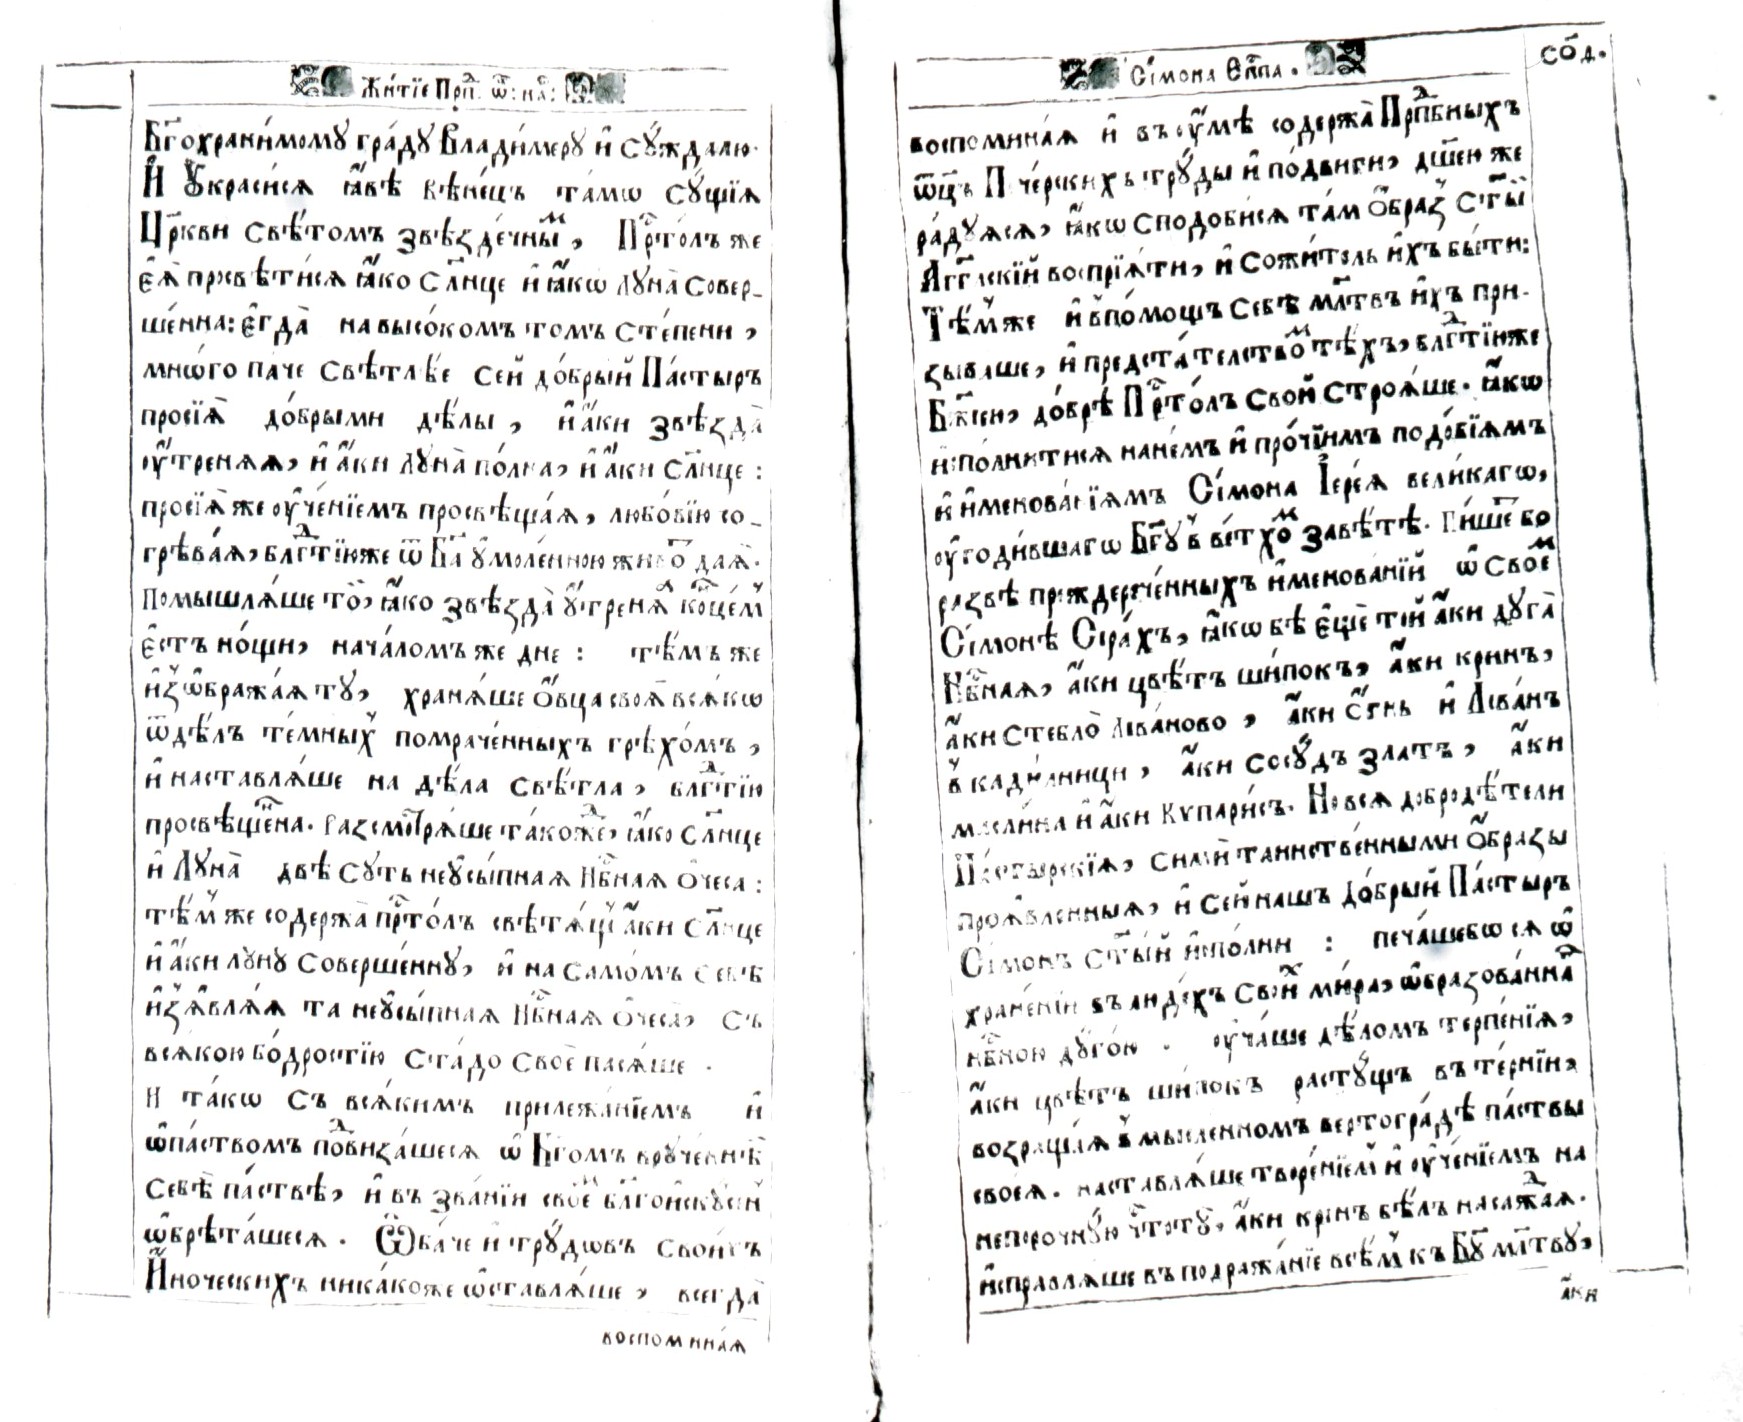 Жи́тїе Прп҇: ѿ: на́:
Бг҃охрани́мому гра́ду Влади́меру и҆ Су́ждалю.
И҆ Ꙋ҆краси́сѧ ꙗ҆́вѣ вѣне́цъ та́мѡ Су́щїѧ
Цр҃кви Свѣ́томъ Звѣзде́чнымъ, Прⷭ҇то́лъ же
є҆ѧ̀ просвѣти́сѧ ꙗ҆́ко Сл҃нце и҆ ꙗ҆́кѡ луна̀ Совер-
ше́нна: є҆гда̀ на высо́комъ томъ Сте́пени,
мно́гѡ па́че Свѣтлѣ́е Сей до́брый Па́стырь
просїѧ̀ до́брыми дѣ́лы, и҆ а҆́ки Звѣзда̀
ᲂу҆́тренѧѧ, и҆ а҆́ки луна̀ по́лна, и҆ а҆́ки Сл҃нце:
просїѧ̀ же ᲂу҆че́нїемъ просвѣща́ѧ, любо́вїю со-
грѣва́ѧ, блгⷣтїю же ѿ Бг҃а ᲂу҆моле́нною живо́т даѧ̀.
Помышлѧ́ше то̀, ꙗ҆́ко Звѣзда̀ ᲂу҆́тренѧѧ ко́нцемъ
є҆́стъ но́щи, нача́ломъ же дне: тѣ́мъ же
и҆зѡбража́ѧ ту, хранѧ́ше Ѻ҆́вца своѧ̀ всѧ́кѡ
ѿ дѣ́лъ те́мныхъ помраче́нныхъ грѣхо́мъ,
и҆ наставлѧ́ше на дѣ́ла Свѣ́тла, блгⷣтїю
просвѣще́нна. Разсмотрѧ́ше та́кожде, ꙗ҆́ко Сл҃нце
и҆ Луна̀ двѣ̀ Су́ть неᲂусы́пнаѧ Нбⷭ҇наѧ ѻ҆́чеса:
тѣ́мъ же содержа̀ прⷭ҇то́лъ свѣтѧ́щъ а҆́ки Сл҃нце
и҆ а҆́ки луну Соверше́нну, и҆ на Само́мъ Себѣ̀
и҆зꙗвлѧ́ѧ та неᲂусы́пнаѧ Нбⷭ҇наѧ ѻ҆́чеса, Съ
всѧ́кою бо́дростїю Ста́до Своѐ пасѧ́ше.
И та́кѡ Съ всѧ́кимъ прилежа́нїемъ и҆
ѡ҆па́ствомъ подвиза́шесѧ ѡ҆ Бг҃омъ вруче́ннѣй
Себѣ̀ па́ствѣ, и҆ въ зва́нїи свое́мъ бл҃гои҆ску́сенъ
ѡ҆брѣта́шесѧ. Ѻ҆ба́че и҆ трудѡ́въ Свои́хъ
И҆́ноческихъ ника́коже ѡ҆ставлѧ́ше, всегда̀
воспомина́ѧ
Сі́мона Еп҇па. Со́д.
воспомина́ѧ и҆ въ ᲂу҆мѣ̀ содержа̀ Прпⷣбныхъ
ѿц҃ъ Пече́рскихъ труды и҆ по́двиги, дш҃ею же
ра́дуѧсѧ, ꙗ҆́кѡ Сподоби́сѧ та́м Ѻ҆́бразъ Ст҃ы́й
А҆́гг҃лскїй воспрїѧ́ти, и҆ Сожи́тель и҆́хъ бы́ти:
Тѣ́мъ же и҆ в̾ по́мощъ Себѣ̀ мл҃твъ и҆́хъ при-
зыва́ше, и҆ предста́телствомъ тѣ́хъ, блгⷣтїи же
Бж҃їеи, до́брѣ Прⷭ҇то́лъ Свой Строѧ́ше. ꙗ҆́кѡ
и҆спо́лнитисѧ на не́мъ и҆ про́чїимъ подо́бїѧмъ
и҆ и҆менова́нїѧмъ Сі́мона І҆ере́ѧ вели́кагѡ,
ᲂу҆годи́вшагѡ Бг҃у в̾ ве́тхомъ Завѣ́тѣ. Пи́шет бо
ра́звѣ преждерече́нныхъ и҆менова́нїй ѡ҆ Свое́мъ
Сі́монѣ Сїра́хъ, ꙗ҆́кѡ бѣ̀ є҆щѐ то́й а҆́ки дуга̀
Нбⷭ҇наѧ, а҆́ки цвѣ́тъ ши́покъ, а҆́ки кринъ,
а҆́ки Стебло̀ Ліва́ново, а҆́ки Ѻ҆гнь и҆ Ліва́нъ
в̾ кади́лници, а҆́ки Сосу́дъ Златъ, а҆́ки
ма́слина и҆ а҆́ки Купари́съ. Но всѧ добродѣ́тели
Па́стырскїѧ, Сими таи́нственными Ѻ҆́бразы
проꙗвле́нныѧ, и҆ Сей нашъ До́брый Па́стырь
Сі́монъ Ст҃ы́й и҆спо́лни: печа́шебѡ сѧ ѡ҆
хране́нїи въ люде́хъ Свои́хъ ми́ра, ѡ҆бразова́нна
нбⷭ҇ною дуго́ю. ᲂу҆ча́ше дѣ́ломъ терпе́нїѧ,
а҆́ки цвѣ́тъ ши́покъ расту́щъ въ те́рнїи,
возраща́ѧ в̾ мы́сленномъ вертогра́дѣ па́ствы
своеѧ̀. наставлѧ́ше творе́нїемъ и҆ ᲂу҆че́нїемъ на
непоро́чную чⷭ҇тоту̀, а҆́ки кринъ бѣ́лъ насажда́ѧ.
и҆справлѧ́ше въ подража́нїе всѣ́мъ къ Бг҃у мл҃тву,
а҆́ки